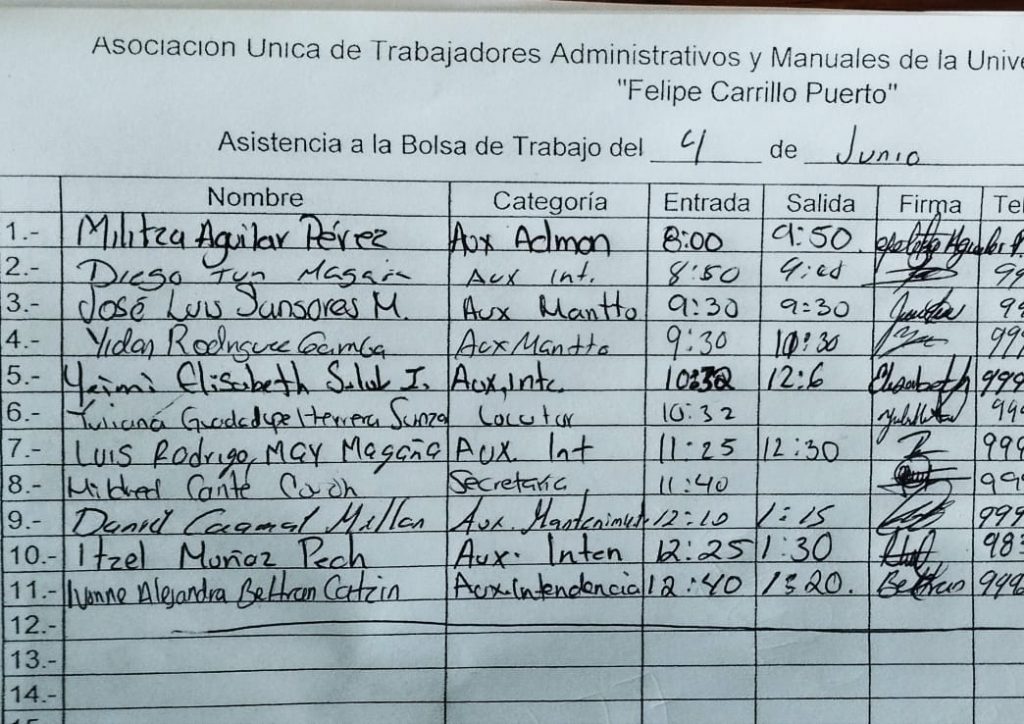 Asociación Única de Trabajadores Administrativos y Manuales de la Unive
"Felipe Carrillo Puerto"
Asistencia a la Bolsa de Trabajo del 4 de Junio
Nombre Categoría Entrada Salida Firma Tel
1.- Militza Aguilar Pérez Aux Admon 8:00 9:50
2.- Diego Tun Magaña Aux Int. 8:50 99
3.- José Luis Sansores M. Aux Mantto 9:30 9:30 99
4.- Yidan Rodriguez Gamba Aux Mantto 9:30 10:30 999
5.- Yeimi Elisabeth Sulub I. Aux, Int. 12:6 Elisabeth 999
6.- Yuliana Guadadupe Herrera Sunza Locutor 10:32 999
7.- Luis Rodrigo May Magaña Aux Int 11:25 12:30 999
8.- Mildred Canté Couoh Secretaria 11:40 999
9.- Daniel Caamal Millan Aux. 12:10 1:15 999
10.- Itzel Muñoz Pech Aux. Inten 12:25 1:30 983
11.- Ivonne Alejandra Beltran Catzin Aux.Intendencia 12:40 1320. Beltran 999
12.-
13.-
14.-